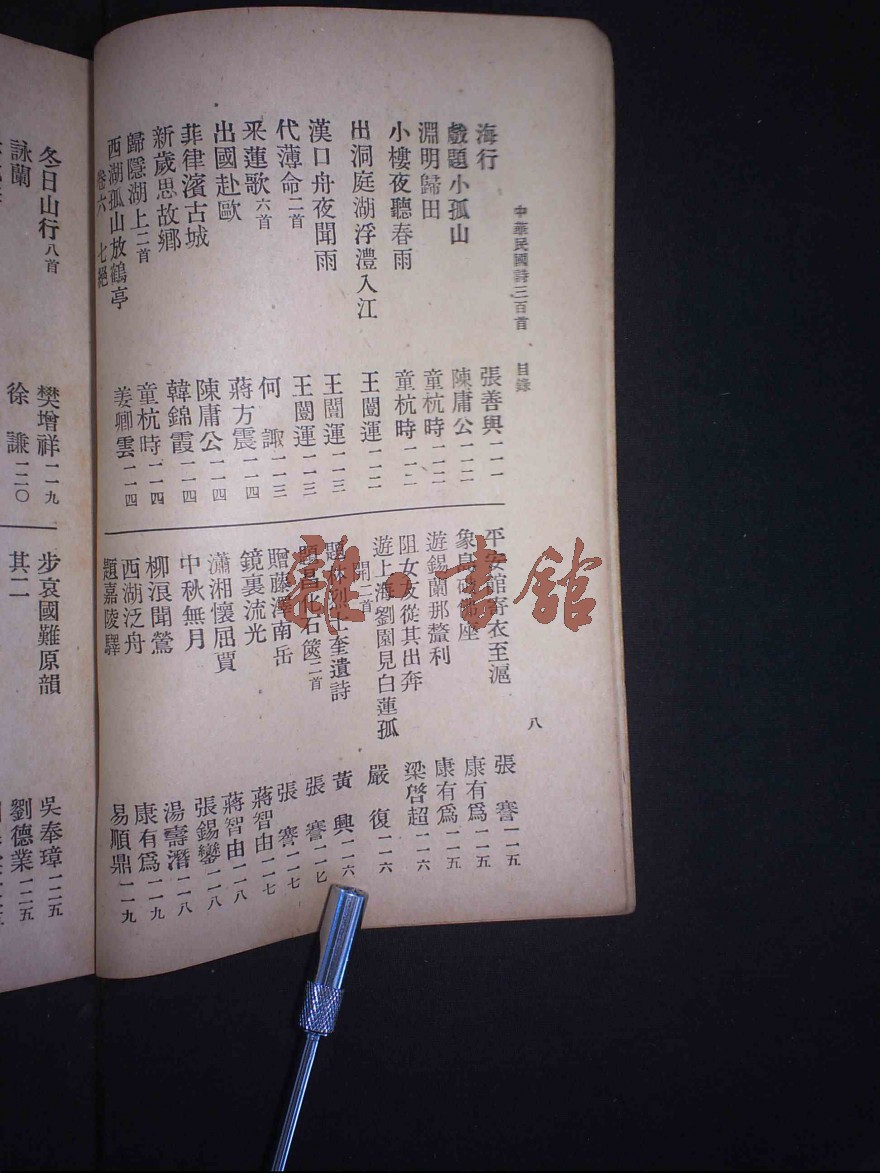 中華民國詩三百首 目錄
八
海行 張善與 一一一
戲題小孤山 陳庸公 一一二
淵明歸田 童杭時 一一二
小樓夜聽春雨 童杭時 一一二
出洞庭湖浮澧入江 王闓運 一一二
漢口舟夜聞雨 王闓運 一一三
代薄命二首 王闓運 一一三
采蓮歌六首 何諏 一一三
出國赴歐 蔣方震 一一四
菲律濱古城 陳庸公 一一四
新歲思故鄉 韓錦霞 一一四
歸隱湖上二首 童杭時 一一四
西湖孤山放鶴亭 姜卿雲 一一四
卷六 七絕
平安舘 衣至滬 張謇 一一五
象 佛座 康有爲 一一五
遊錫蘭那 利 康有爲 一一五
阻女友從其出奔 梁啓超 一一六
遊上海劉園見白蓮孤
開二首 嚴復 一一六
題林烈士奎遺詩 黃興 一一六
題昌化石篋二首 張謇 一一七
贈藤澤南岳 張謇 一一七
鏡裏流光 蔣智由 一一七
瀟湘懷屈賈 蔣智由 一一八
中秋無月 張錫鑾 一一八
柳浪聞鶯 湯壽潛 一一八
西湖泛舟 康有爲 一一九
題嘉陵驛 易順鼎 一一九
冬日山行八首 樊增祥 一一九
詠蘭 徐謙 一二〇
步哀國難原韻 吳奉璋 一二五
其二 劉德業 一二五
雜·書舘